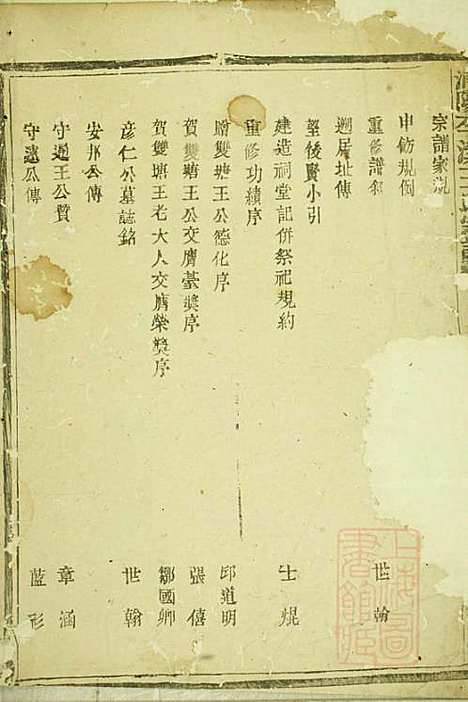 宗譜家規
申飭規個
重修譜叙　世翰
遡居址傳
望後賢小引
建造祠堂記併祭祀規約　士焜
重修功績序
贈雙塘王公德化序　邱道明
賀雙塘王公交膺豪獎序　張僖
賀雙塘王老大人交膺榮獎序　鄒國卿
彦仁公墓誌銘　世翰
安邦公傳
守道王公贊　章涵
守遠公傳　藍彩
上海圖書館藏